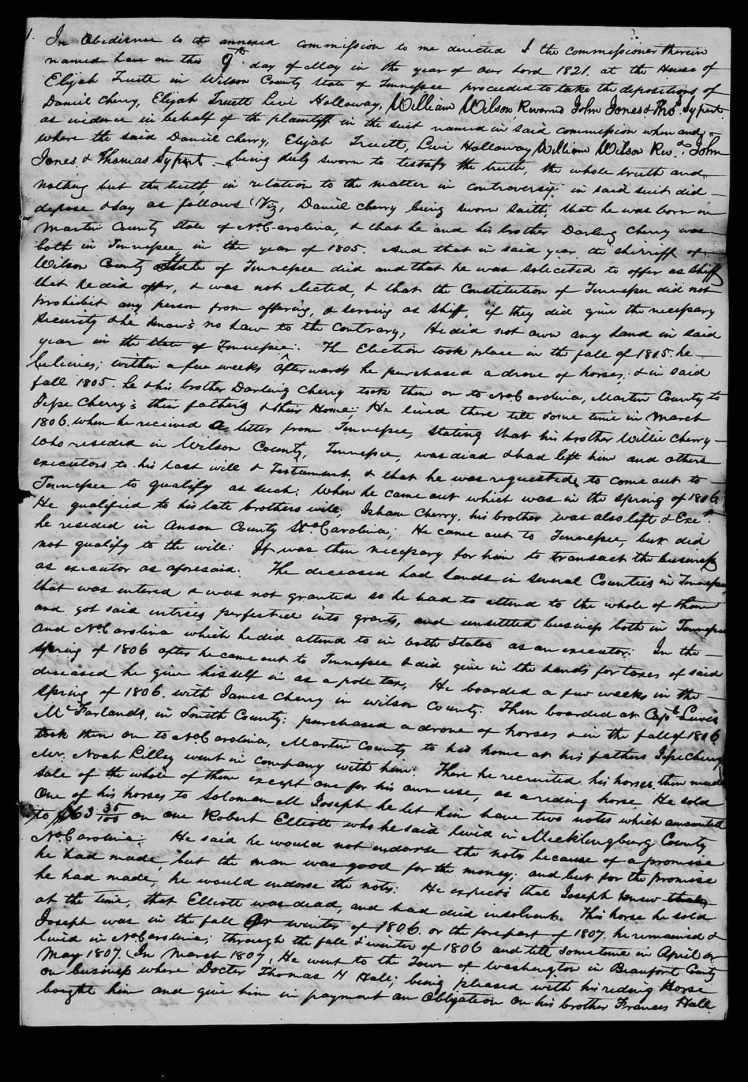 1. In Obedience to the annexed commission to me directed I the commissioner therein
named have on the 9th day of May in the year of our Lord 1821. at the House of
Elijah Truett in Wilson County State of Tennessee proceeded to take the depositions of
Daniel Cherry, Elijah Truett Levi Holloway, William Wilson, Revernd John Jones & Thos. Sypert.
as evidence in behalf of the plaintiff in the suit named in said commission when and
where the said Daniel Cherry, Elijah Truett, Levi Holloway William Wilson Revd. John
Jones, & Thomas Sypert. being duly sworn to testify the truth, the whole truth and
nothing but the truth, in relation to the matter in controversy in said suit did
depose & say as follows Viz, Daniel Cherry being sworn Saith, that he was born in
Martin County State of No. Carolina, & that he and his brother Darling Cherry was
both in Tennessee in the year of 1805. And that in said year the sherriff of
Wilson County State of Tennessee did and that he was solicited to offer as Shiff
that he did offer, & was not elected, & that the Constitution of Tennessee did not
prohibit any person from offering, & serving as Shiff, if they did give the necessary
security & he know's no Law to the Contrary, He did not own any Land in said
year in the State of Tennessee. The Election took place in the fall of 1805. he
believes; within a few weeks Afterwards he purchased a drove of horses, & in said
fall 1805. he & his brother Darling Cherry took them on to No. Carolina, Martin County to
Jesse Cherry's their father's & their Home; He lived there till some time in March
1806. when he received a letter from Tennessee, Stating that his brother Willie Cherry
who resided in Wilson County, Tennessee, was dead & had left him and others
executors to his last will & Testament, & that he was requested to come out to
Tennessee to qualify as such: When he came out which was in the spring of 1806
He qualified to his late brothers will, Isham Cherry, his brother was also left & Exe.
he resided in Anson County No. Carolina; He came out to Tennessee, but did
not qualify to the will: It was then necessary for him to transact the business
as executor as aforesaid: The deceased had Lands in several Counties in Tennessee
that was entered & was not granted so he had to attend to the whole of them
and got said entries perfected into grants, and unsettled business both in Tennessee
and No. Carolina which he did attend to in both States as an executor: In the
spring of 1806 after he came out to Tennessee & did give in the lands for taxes of said
deceased he give hisself in as a pole tax, He boarded a few weeks in the
spring of 1806, with James Cherry in Wilson County. Then boarded at Capt. Lewis
McFarlands, in Smith County; purchased a drove of horses & in the fall of 1806
took them on to No. Carolina, Martin County to his home at his fathers Jesse Cherry
Mr. Noah Lilley went in company with him. There he recruited his horses, then made
sale of the whole of them except one for his own use, as a riding horse, He sold
One of his horses to Solomon M Joseph he let him have two notes which amounted
to $63 35/100 on one Robert Elliott who he said lived in Mecklingburg County
No. Carolina. He said he would not endorse the note because of a promise
he had made, but the man was good for the money, and but for the promise
he had made, he would endorse the note: He expects that Joseph knew
at the time, that Elliott was dead, and had died insolvent. This horse he sold
Joseph was in the fall Or winter of 1806. or the forepart of 1807. he remained &
lived in No. Carolina; through the fall & winter of 1806 and till sometime in April or
May 1807. In March 1807, He went to the Town of Washington in Beaufort County
on business where Docter Thomas H Hall; being pleased with his riding Horse
bought him and give him in payment an Obligation on his brother Frances Hall